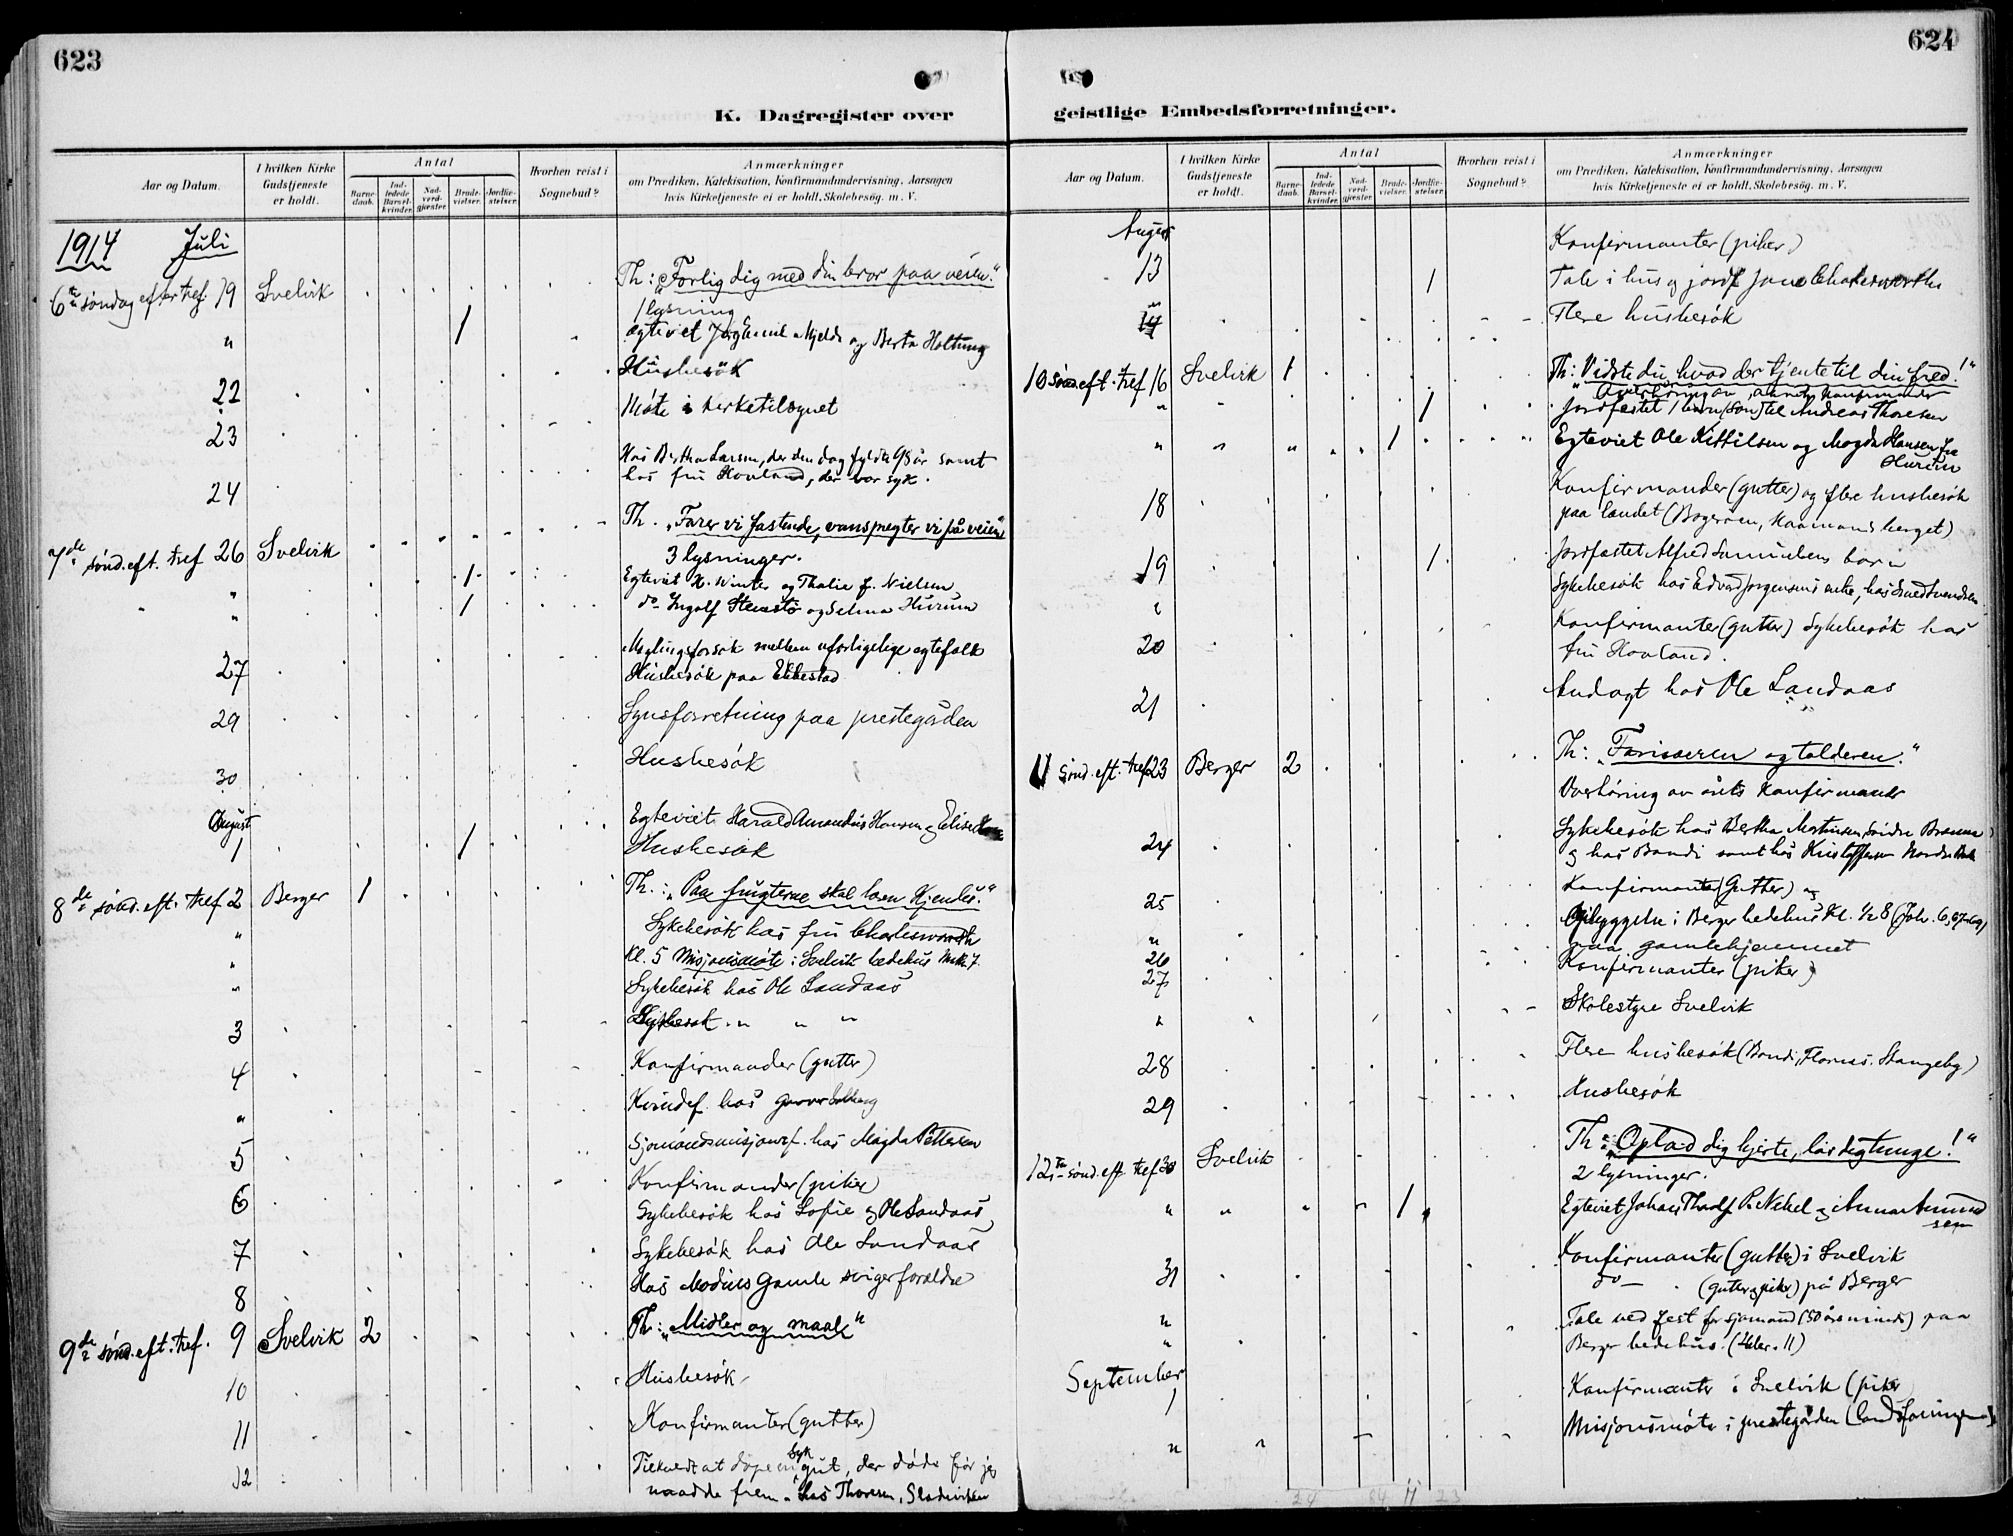 623
K. Dagregister over
Aar og Datum.
I hvilken Kirke Gudstjeneste er holdt.
Antal
Barne-daab.
Ind-ledede Barsel-kvinder.
Nad-verd-gjæster.
Brude-vielser.
Jordfæ-stelser.
Hvorhen reist i Sognebud?
Anmærkninger
om Prædiken, Katekisation, Konfirmandundervisning, Aarsagen
hvis Kirketjeneste ei er holdt, Skolebesøg. m. V.
1914 Juli
6te søndag efter tref. 19 Svelvik Th: „Forlig dig med din bror paa veien."
1 lysning
" 1 Egteviet og Berta Holtung
Husbesøk
22 Møte i kirketilsynet
23 Hos Bertha Larsen, der den dag fyldte 95 år samt
hos fru Hovland, der var syk.
24
7de sønd. eft. tref 26 Svelvik Th. „Farer vi fastende, vansmegter vi på veien"
3 lysninger.
" 1 Egteviet H. Winter og Thalie f. Nielsen
" 1 do Ingolf Stensto og Selma Hurum
27 Meglingsforsøk mellem uforligelige egtefolk
Husbesøk paa Ekkestad
29 Synsforretning paa prestegården
30 Husbesøk
August
1 1 Egteviet Harald Amandus Hansen og Elise
Husbesøk
8de sønd. eft. tref 2 Berger 1 Th.: „Paa frugterne skal træ kjendes."
" Sykebesøk hos fru Charlesworth
" Kl. 5 Misjonsmøte i Svelvik bedehus Mrk. 7
" Sykebesøk hos Ole Landaas
3 Sykebesøk " " "
4 Konfirmander (gutter)
" Kvindef. hos Solberg
5 Sjømandsmisjonsf. hos Magda Pettersen
Konfirmander (piker)
6 Sykebesøk hos Sofie og Ole Landaas
7 Sykebesøk hos Ole Landaas
8 Hos Modines gamle svigerforældre
9de sønd. eft. tref. 9 Svelvik 2 Th: „Midler og maal"
10 Husbesøk
11 Konfirmanter (gutter)
12 Tilkaldt at døpe en syk gut, der døde før jeg
naadde frem. hos Thoresen,
624
geistlige Embedsforretninger.
Aar og Datum.
I hvilken Kirke Gudstjeneste er holdt.
Antal
Barne-daab.
Ind-ledede Barsel-kvinder.
Nad-verd-gjæster.
Brude-vielser.
Jordfæ-stelser.
Hvorhen reist i Sognebud?
Anmærkninger
om Prædiken, Katekisation, Konfirmandundervisning, Aarsagen
hvis Kirketjeneste ei er holdt, Skolebesøg. m. V.
August
Konfirmanter (piker)
13 1 Tale i hus og jordf. Jane Charlesworth
14 Flere husbesøk
10 sønd. eft. tref 16 Svelvik 1 Th: „Vidste du hvad der tjente til din fred!"
Overhøring av årets konfirmander
" 1 Jordfestet 1 barn (søn) til Andreas Thoresen
" " " 1 Egteviet Ole Kittilsen og Magda Hansen fra
Hurum
18 Konfirmander (gutter) og flere husbesøk
paa landet
19 1 Jordfæstet Alfred Samuelsens barn
" Sykebesøk hos Edvard Jørgensens enke, hos Svendsen
20 Konfirmanter (gutter) Sykebesøk hos
fru Hovland.
21 Andagt hos Ole Landaas
11 sønd. eft. tref 23 Berger 2 Th: „Farisæeren og tolderen."
Overhøring av årets konfirmander
24 Sykebesøk hos Bertha Mortensen, Søndre
og hos Bondi samt hos Kristoffersen Nordre
25 Konfirmanter (Gutter) og
Opbyggelse i Berger bedehus Kl. 1/2 8 (Joh. 6, 67-69)
" paa gamlehjemmet
26 Konfirmanter (piker)
27
" Skolestyre Svelvik
28 Flere husbesøk (Bondi, Stangeby)
29 Husbesøk
12te sønd. eft. tref 30 Svelvik Th: „Oplad dig hjerte, løs dig tunge!"
2 lysninger.
" " " 1 Egteviet Johan og Anna Amund
sen
31 Konfirmanter (gutter) i Svelvik
do — (gutter og piker) på Berger
" Tale ved fest for sjømand (50 års minde) paa
" Berger bedehus. (Hebr. 11)
September
1 Konfirmanter i Svelvik (piker
" " Misjonsmøte i prestegården
24 84 11 23